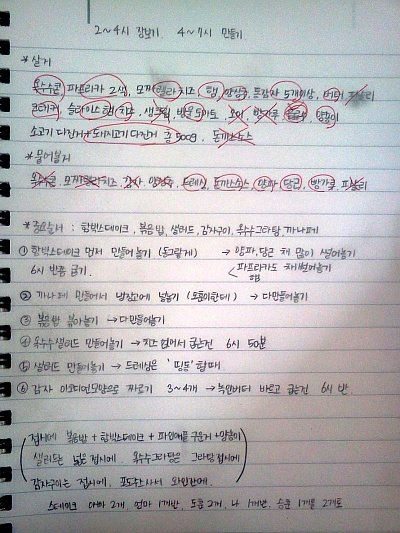 2~4시 장보기. 4~7시 만들기
*살거
옥수수콘, 파프리카 2색, 모짜렐라치즈, 햄, 양상추, 통감자 5개이상, 버터, 파슬리
크래커, 슬라이스햄, 치즈, 생크림, 방울토마토, 오이, 밀가루, 양송이
소고기 다진거+돼지고기 다진거 총 500g, 돈까스소스
*물어볼거
옥수수콘, 모짜렐라치즈, 감자, 양상추, 드레싱, 돈까스소스, 양파, 당근, 빵가루, 파슬리
*중요순서 : 함박스테이크, 볶음밥, 샐러드, 감자구이, 옥수수그라탕, 까나페
① 함박스테이크 먼저 만들어놓기 (동그랗게) → 양파, 당근 채 많이 썰어놓기
6시 반쯤 굽기. < 파프리카도 채썰어놓기
햄
② 까나페 만들어서 냉장고에 넣놓기 (모듬이한데) → 다만들어놓기
③ 볶음밥 볶아놓기 → 다만들기
④ 옥수수샐러드 만들어놓기 → 치즈 얹어서 굽는건 6시 50분
⑤ 샐러드 만들어놓기 → 드레싱은 '띵동' 할때
⑥ 감자 아코디언모양으로 짜르기 3~4개 → 녹인버터 바르고 굽는건 6시 반.
접시에 볶음밥 + 함박스테이크 + 파인애플 구운거 + 양송이
샐러드는 넓은 접시에. 옥수수그라탕은 그라탕접시에
감자구이는 접시에. 포도주스사서 와인잔에.
스테이크 아빠 2개, 엄마 1개반, 도흠 2개, 나 1개반, 승훈 1개를 2개로